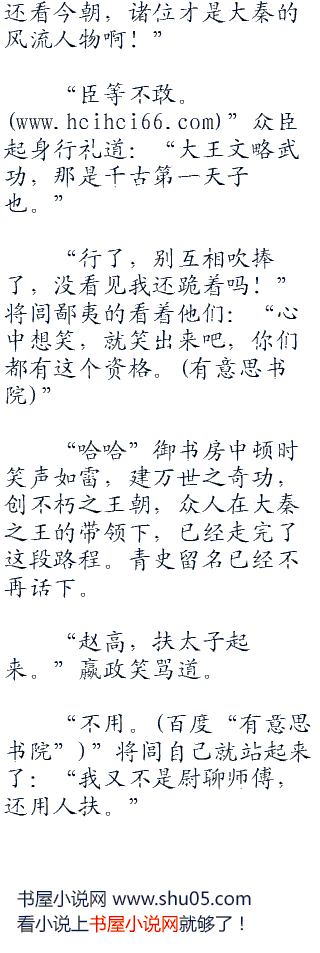 还看今朝，诸位才是大秦的
风流人物啊！”
“臣等不敢。
(www.hcihci66.com)”众臣
起身行礼道：“大王文略武
功，那是千古第一天子
也。”
“行了，别互相吹捧
了，没看见我还跪着吗！”
将闾鄙夷的看着他们：“心
中想笑，就笑出来吧，你们
都有这个资格。(有意思书
院)”
“哈哈”御书房中顿时
笑声如雷，建万世之奇功，
创不朽之王朝，众人在大秦
之王的带领下，已经走完了
这段路程。青史留名已经不
再话下。
“赵高，扶太子起
来。”嬴政笑骂道。
“不用。(百度“有意思
书院”)”将闾自己就站起来
了：“我又不是尉聊师傅，
还用人扶。”
书屋小说网 www.shu05.com
看小说上书屋小说网就够了！